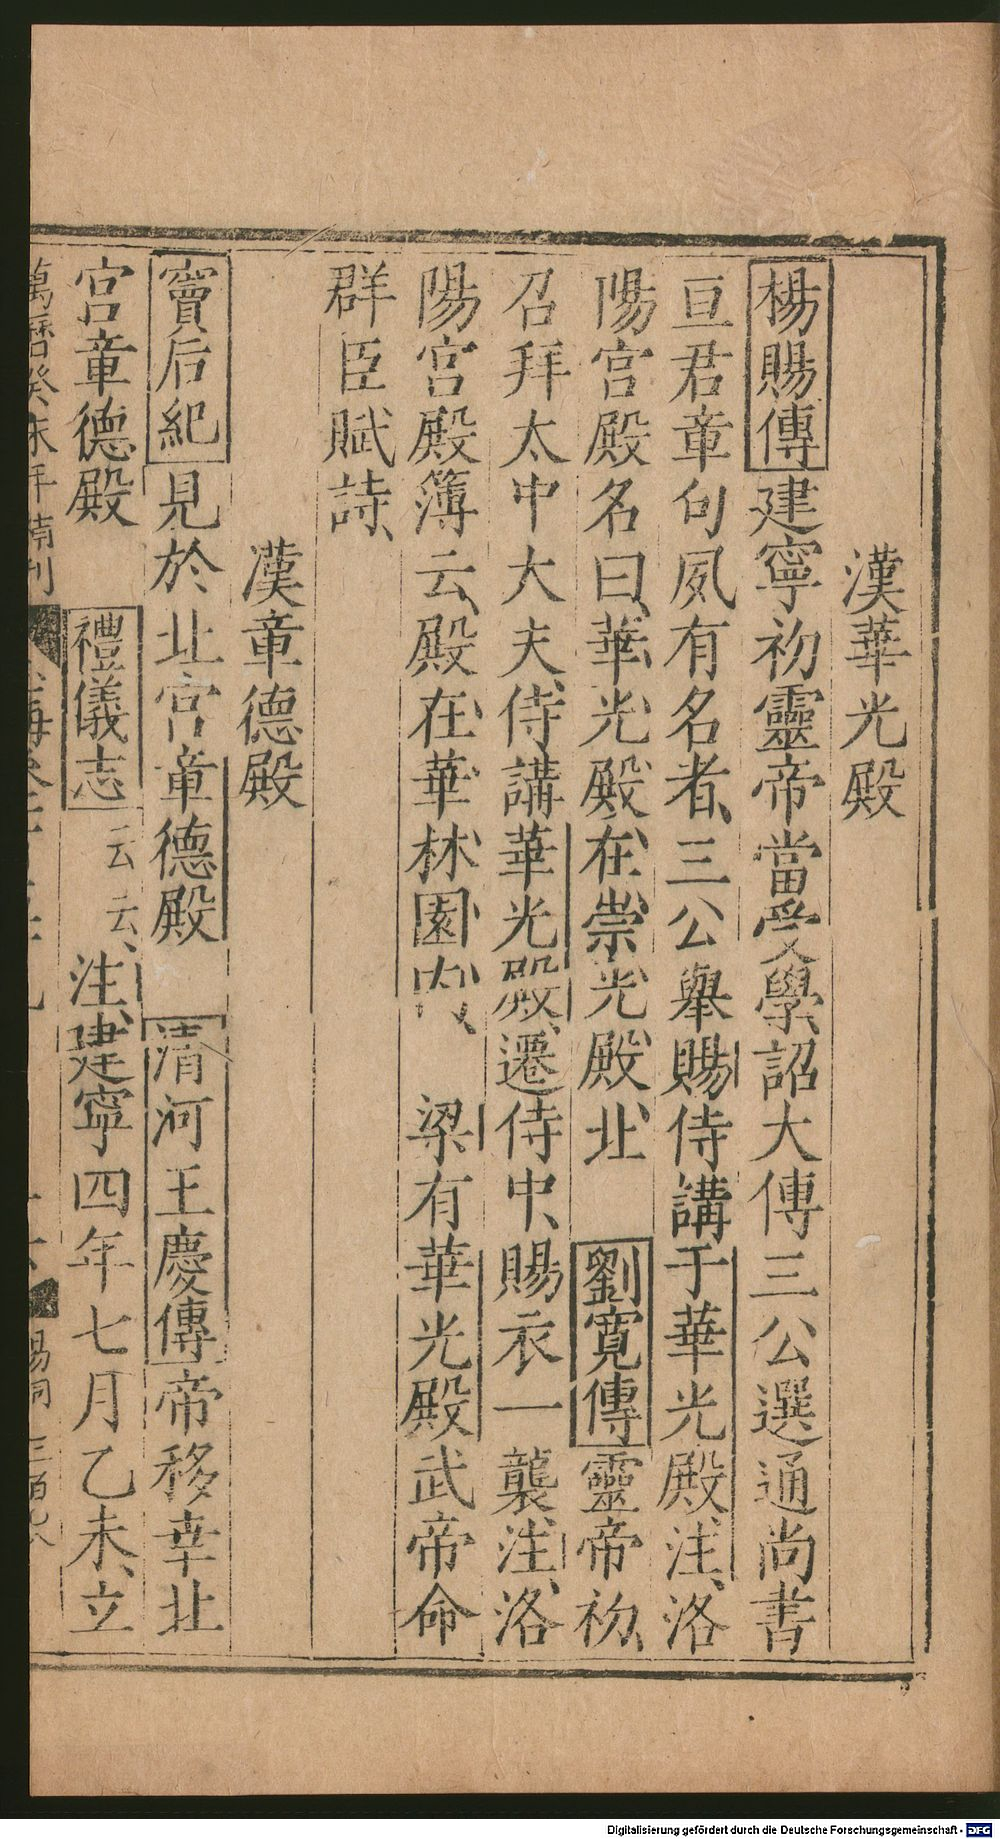 漢華光殿
楊賜傳建寧初靈帝當受學詔大傅三公選通尚書
亘君章句夙有名者三公舉賜侍講于華光殿注洛
陽宮殿名曰華光殿在崇光殿北 劉寬傳靈帝初
召拜太中大夫侍講華光殿遷侍中賜衣一襲注洛
陽宮殿簿云殿在華林園內 梁有華光殿武帝命
群臣賦詩
漢章德殿
竇后紀見於北宮章德殿 清河王慶傳帝移幸北
宮章德殿 禮儀志云云注建寧四年七月乙未立
萬曆癸未年 刊
Digitalisierung gefördert durch die Deutsche Forschungsgemeinschaft - DFG